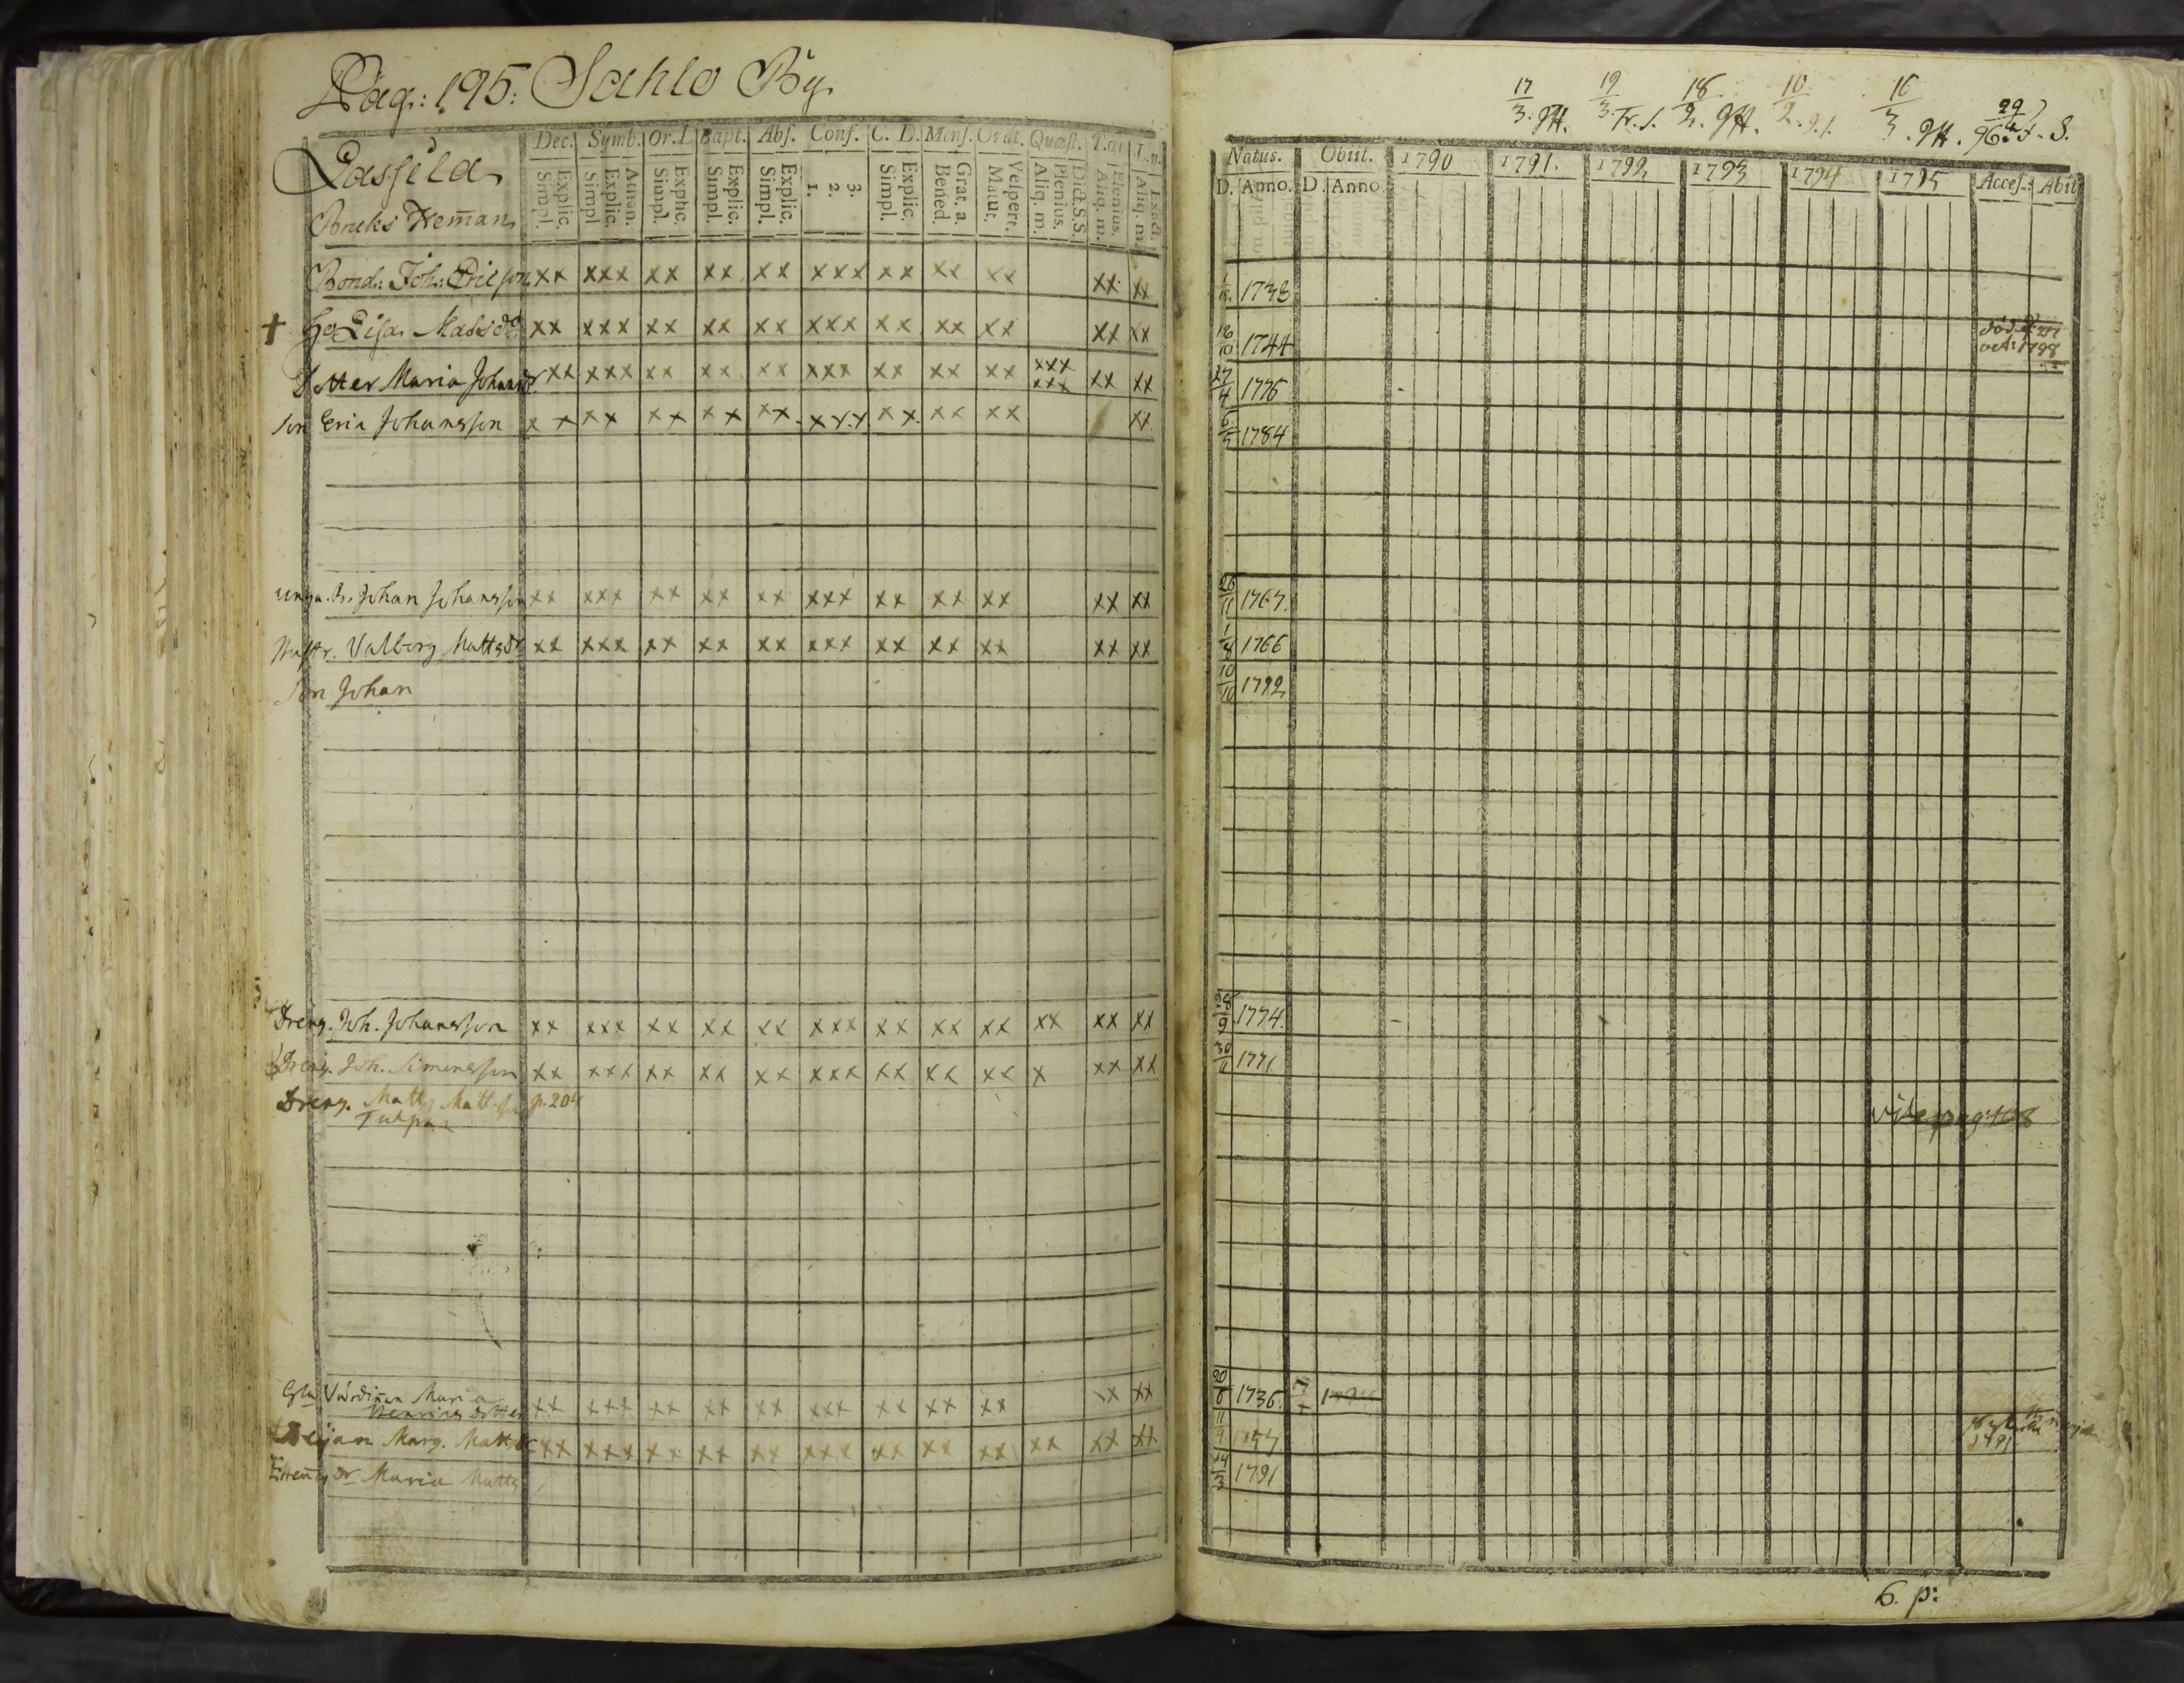 Pag: 195: Sahlo By.
Dec. Symb. Or. D. Bapt. Abs. Conf. C. D. Mens. Orat. Quæst. T. œc L. n.
Explic. Simpl. Athan. Explic. Simpl. Explic. Simpl. Explic. Simpl. Explic. Simpl. 3. 2. 1. Explic. Simpl. Grat. a. Bened. Vespert. Matut. Dict. S. S. Plenius. Aliq. m. Plenius. Aliq. m. Exact. Aliq. m.
Lassila
Bruks Heman
Bond: Joh: Ericsson xx xxx xx xx xx xxx xx xx xx xx xx
+ Lisa xx xxx xx xx xx xxx xx xx xx xx xx
Dotter Maria Johansdr xx xxx xx xx xx xxx xx xx xx xxx xxx xx xx
son Eric Johansson xx xx xx xx xx xxx xx xx xx xx
unga B. Johan Johansson xx xxx xx xx xx xxx xx xx xx xx xx
Hustr. Valborg Mattsdr xx xxx xx xx xx xxx xx xx xx xx xx
Son Johan
Dreng. Joh. Johansson xx xxx xx xx xx xxx xx xx xx xx xx xx
Dreng. Joh. Simonsson xx xxx xx xx xx xxx xx xx xx x xx xx
Dreng. Matts Mattsson p. 204
Gla Värdinnan Maria
Henrics Dotter xx xxx xx xx xx xxx xx xx xx xx xx
Pijan Marg. Mattsdr xx xxx xx xx xx xxx xx xx xx xx xx xx
dr Maria Matts
17/3. JH. 19/3. Fr. S. 18/2. JH. 10/2. 16/3. JH. 29/4 96. S.
Natus. Obiit. 1790 1791. 1792 1793 1794 1795 Acces. Abit
D. Anno. D. Anno.
1738
18/10 1744 död oct: 1798
27/4 1776
6/5 1784
26/11 1767.
1/8 1766
10/10 1792
28/9 1774.
30/11 1771
vide pag: 168
20/8 1736.
11/9
1791
14/3 1791
6. p: